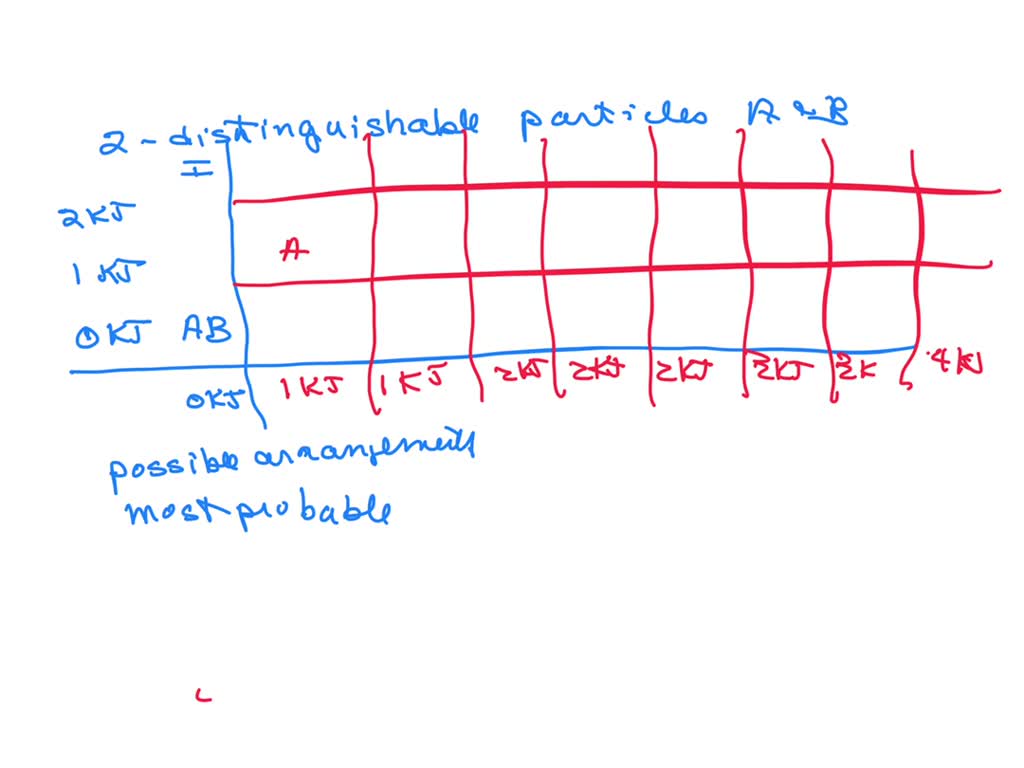 2 - distinguishable particles A & B
I
2KJ
1 KJ A
0KJ AB
0KJ 1KJ 1KJ 2KJ 2KJ 2KJ 3KJ 3K 4KJ
possible arrangements
most probable